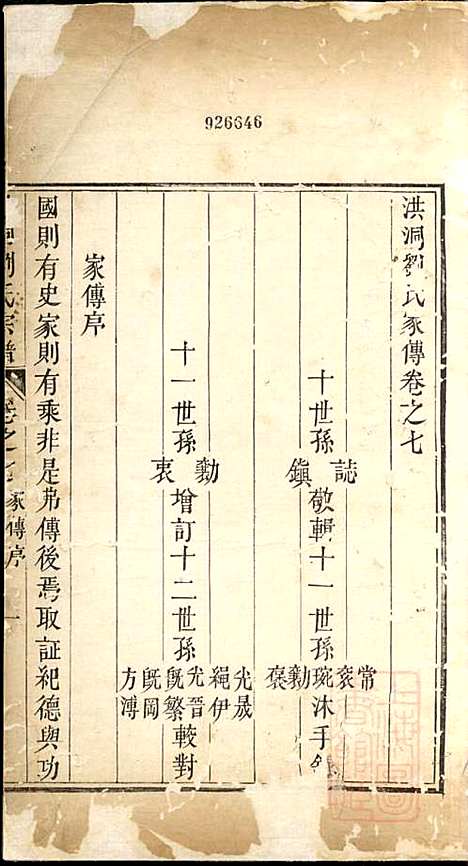 926646
洪洞劉氏家傳卷之七
十世孫 誌 鎮 敬輯十一世孫 常 袞 琬 勷 褒 沐手
十一世孫 勷 衷 增訂十二世孫 光晟 繩伊 光晉 既繁 既岡 方溥 較對
家傳序
國則有史家則有乘非是弗傳後焉取証紀德與功
劉氏宗譜 卷之七 家傳序 一